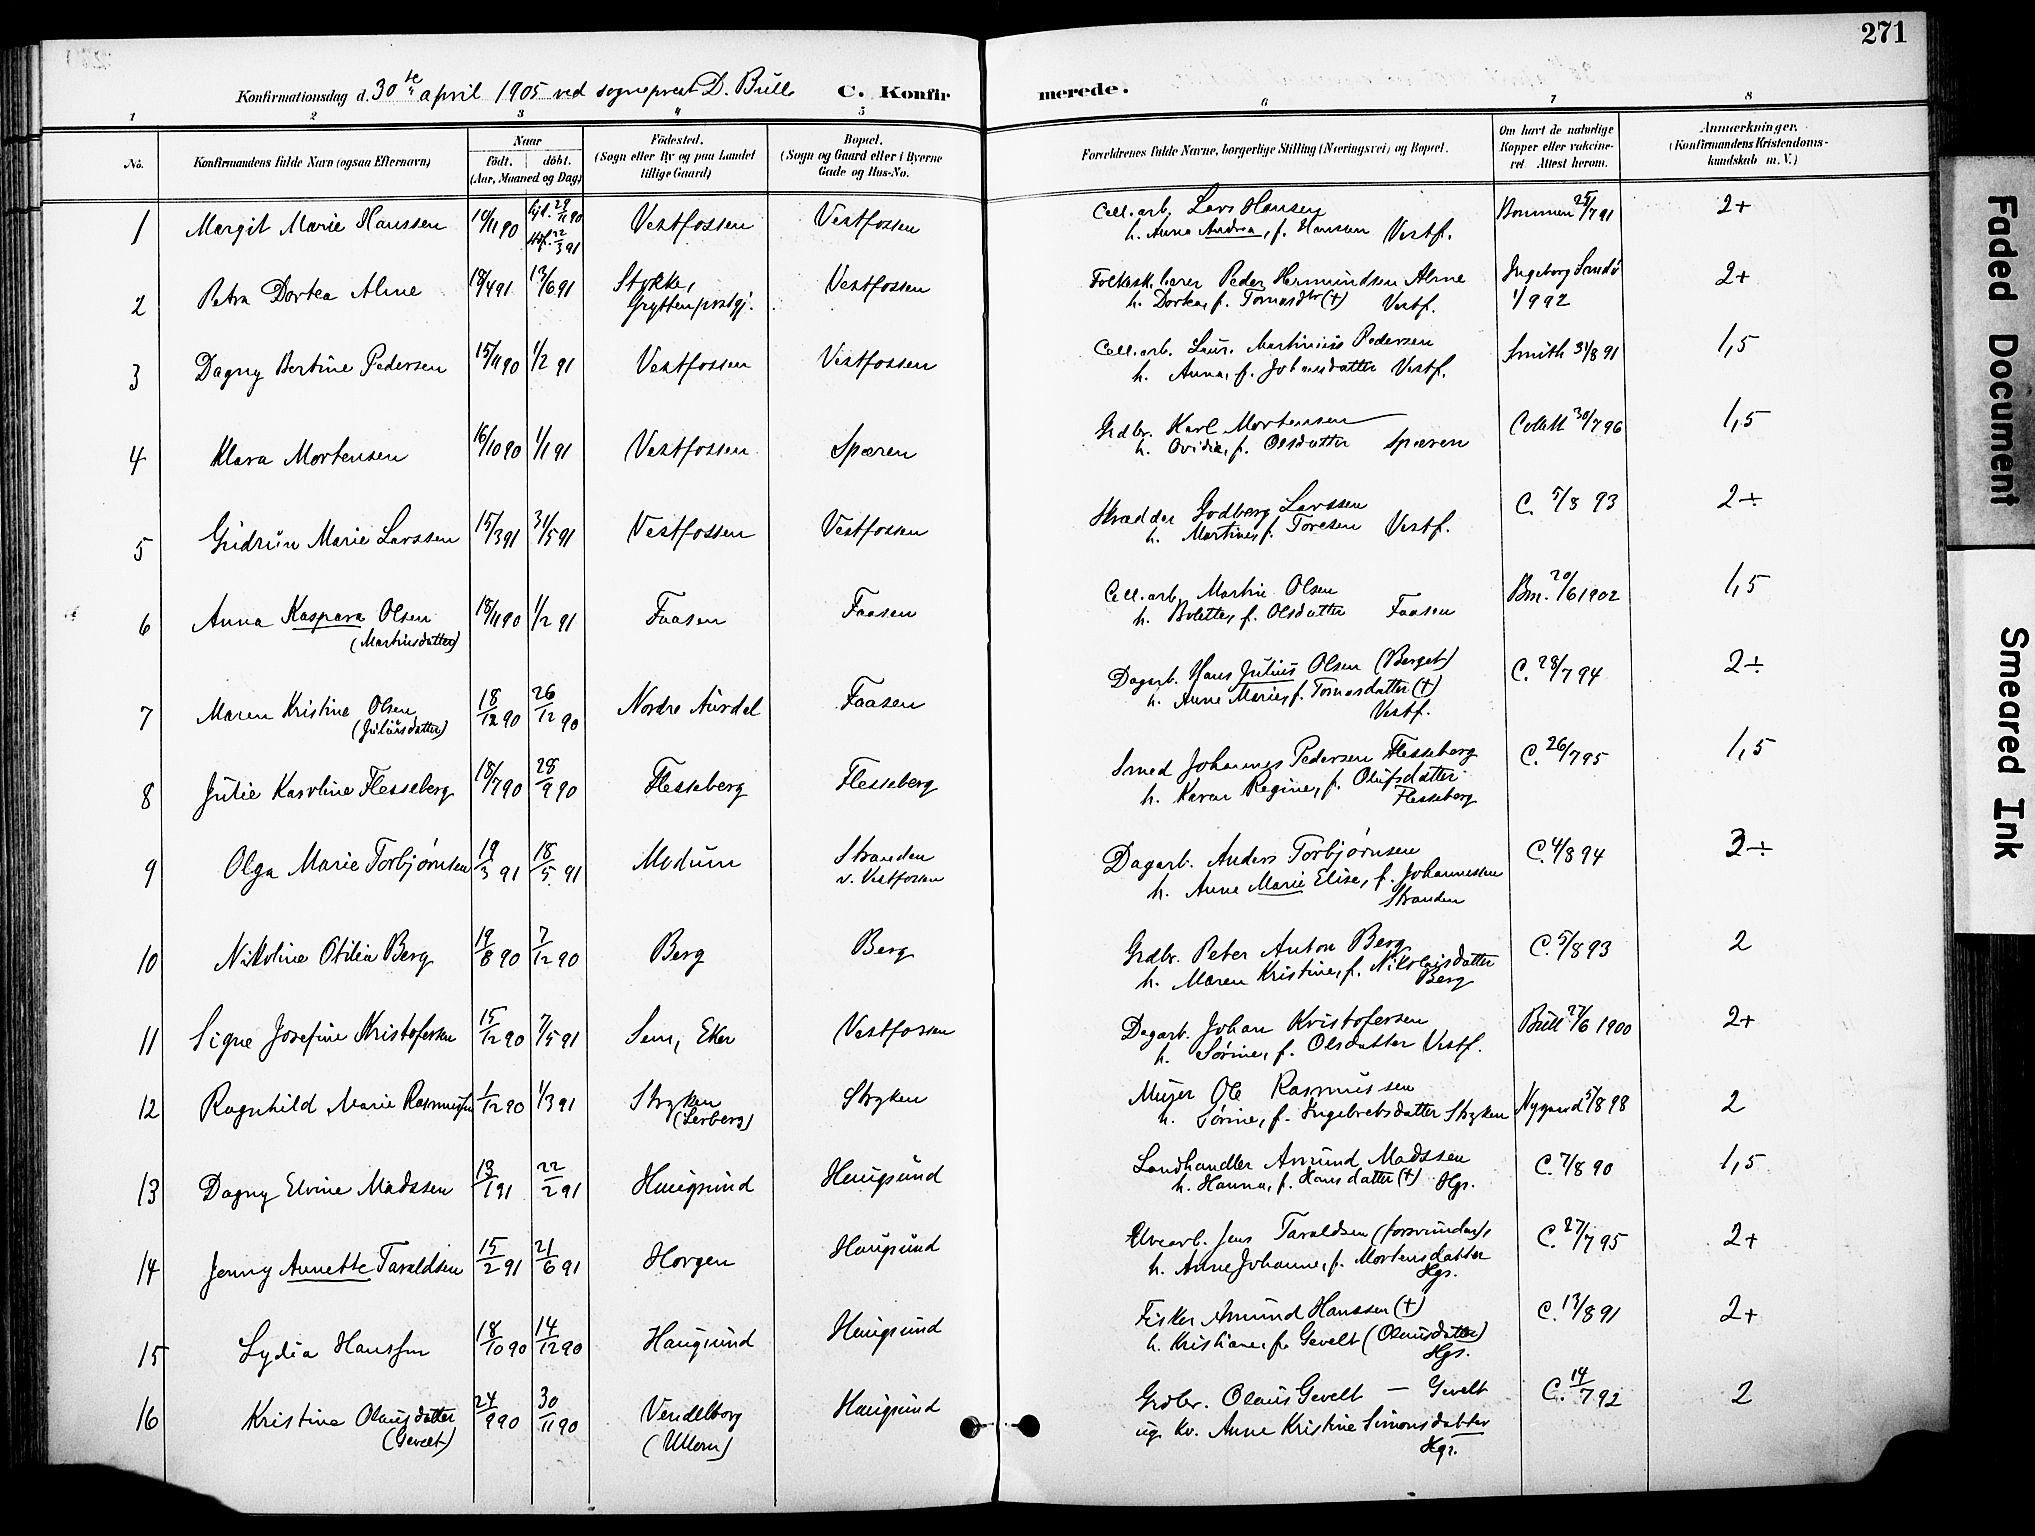 271
Konfirmationsdag d. 30te april 1905 ved sogneprest D. Bull. C. Konfirmerede.
1 2 3 4 5 6 7 8
No.
Konfirmandens fulde Navn (ogsaa Efternavn)
Naar
födt. döbt.
(Aar, Maaned og Dag)
Födested.
(Sogn eller By og paa Landet
tillige Gaard)
Bopæl.
(Sogn og Gaard eller i Byerne
Gade og Hus-No.
Forældrenes fulde Navne, borgerlige Stilling (Næringsvei) og Bopæl.
Om havt de naturlige
Kopper eller vaccine-
ret Attest herom.
Anmærkninger.
(Konfirmandens Kristendoms-
kundskab m. V.)
1 Margit Marie Hanssen 10/11 90 28/11 90 22/3 91 Vestfossen Vestfossen Cell.arb. Lars Hansen Bommen 25/7 91 2+
h. Anna Andrea, f. Hansen Vestf.
2 Petra Dortea Alme 18/4 91 13/6 91 Stokke, Vestfossen Folkesk.lærer Peder Hermundsen Alme Ingeborg 2+
Gryttenprestgj. h. Dortea, f. Tomasdtr (+) Vestf. 1/9 92
3 Dagny Bertine Pedersen 15/11 90 1/2 91 Vestfossen Vestfossen Cell.arb. Laur. Martinius Pedersen Smith 31/8 91 1,5
h. Anna, f. Johansdatter Vestf.
4 Klara Mortensen 16/10 90 1/1 91 Vestfossen Spæren Grdbr. Karl Mortensen Colett 30/7 96 1,5
h. Ovidia, f. Olsdatter Spæren
5 Gudrun Marie Larssen 15/3 91 31/5 91 Vestfossen Vestfossen Skrædder Godberg Larssen C. 5/8 93 2÷
h. Martine, f. Toresen Vestf.
6 Anna Kaspara Olsen 18/11 90 1/2 91 Faasen Faasen Cell.arb. Martin Olsen Bm. 20/6 1902 1,5
(Martinsdatter) h. Bolette, f. Olsdatter Faasen
7 Maren Kristine Olsen 18/12 90 26/12 90 Nordre Aurdal Faasen Dagarb. Hans Julius Olsen (Berget) C. 28/7 94 2÷
(Juliusdatter) h. Anne Marie, f. Tomasdatter (+)
Vestf.
8 Julie Karoline Flesseberg 18/7 90 28/9 90 Flesseberg Flesseberg Smed Johannes Pedersen Flesseberg C. 26/7 95 1,5
h. Karen Regine, f. Olufsdatter
Flesseberg
9 Olga Marie Torbjørnsen 19/3 91 18/5 91 Modum Stranden Dagarb. Anders Torbjørnsen C. 4/8 94 3÷
v. Vestfossen h. Anne Marie Elise, f. Johannessen
Stranden
10 Nikoline Otilia Berg 19/8 90 7/12 90 Berg Berg Grdbr. Peter Anton Berg C. 5/8 93 2
h. Maren Kristine, f. Nikolaisdatter
Berg
11 Signe Josefine Kristofersen 15/12 90 7/5 91 Sem, Eker Vestfossen Dagarb. Johan Kristofersen Bull 27/6 1900 2+
h. Sørine, f. Olsdatter Vestf.
12 Ragnhild Marie Rasmussen 1/12 90 1/3 91 Stryken Stryken Murer Ole Rasmussen Nygaard 5/8 98 2
(Lerberg) h. Sørine, f. Ingebretsdatter Stryken
13 Dagny Elvine Madssen 13/1 91 22/2 91 Haugsund Haugsund Landhandler Amund Madssen C. 7/8 90 1,5
h. Hanna, f. Hansdatter (+) Hgs.
14 Jenny Annette Taraldsen 15/2 91 21/6 91 Horgen Haugsund Elvearb. Jens Taraldsen (forsvunden), C. 27/7 95 2+
h. Anne Johanne, f. Mortensdatter
Hgs.
15 Lydia Hanssen 18/10 90 14/12 90 Haugsund Haugsund Fisker Amund Hanssen (+) C. 13/8 91 2+
h. Kristiane, f. Gevelt (Olausdatter)
Hgs.
16 Kristine Olausdatter 24/9 90 30/11 90 Vendelborg Haugsund Grdbr. Olaus Gevelt — Gevelt C. 19/7 92 2
(Gevelt) (Ullern) ug. Kv. Anne Kristine Simonsdatter
Hgs.
Faded Document
Smeared Ink